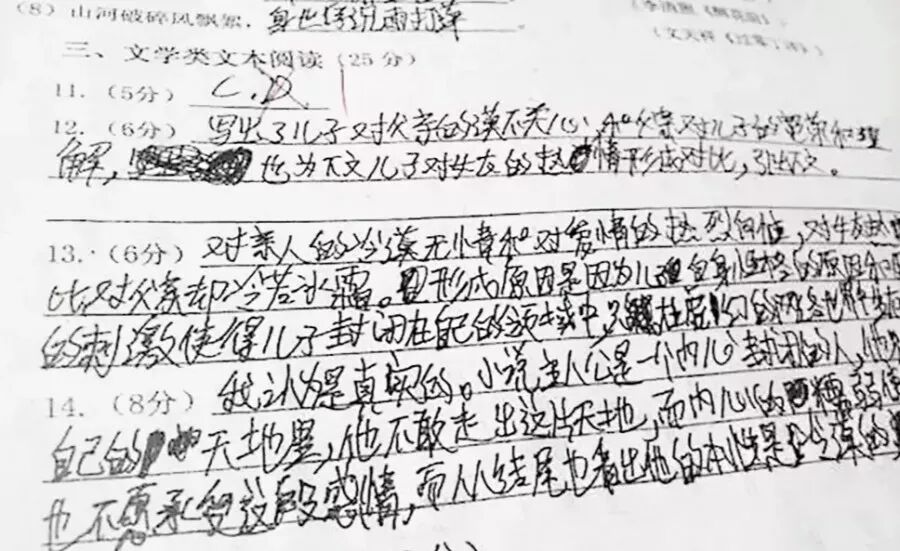 (8) 山河破碎风飘絮,身世浮沉雨打萍
(李清照《
(文天祥《过零丁洋》)
三、文学类文本阅读(25分)
11.(5分) C.D
12.(6分) 写出了儿子对父亲的冷漠不关心,和父亲对儿子的宽荣和理
解,也为下文儿子对失友的热情形成对比,引出下文。
13.·(6分) 对亲人的冷漠无情和对爱情的热烈向往,对女友热
比,对父亲却冷若冰霜。形成原因是因为儿子自身性格的原因和
的刺激使得儿子封闭在自己的领域中,
14.(8分) 我认为是真实的。小说主人公是一个内心封闭的人,他
自己的天地里,他不敢走出这片天地,而内心的懦弱使
也不愿承受这段感情,而从结尾也看出他的本性是冷漠的